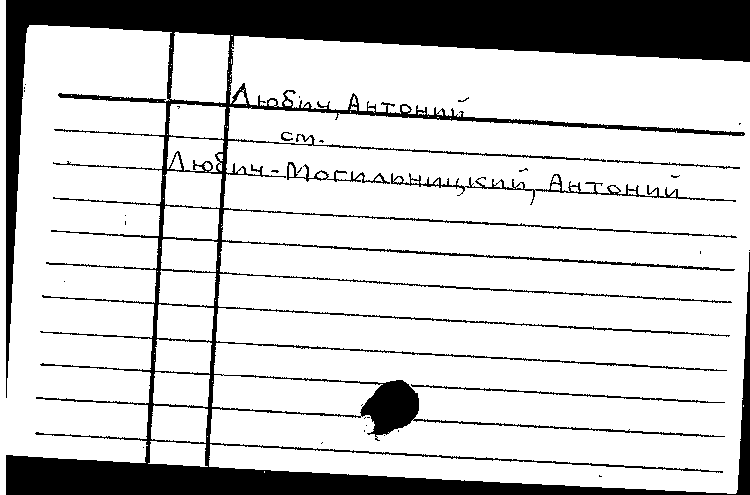 Любич, Антоний
см.
Любич-Могильницкий, Антоний